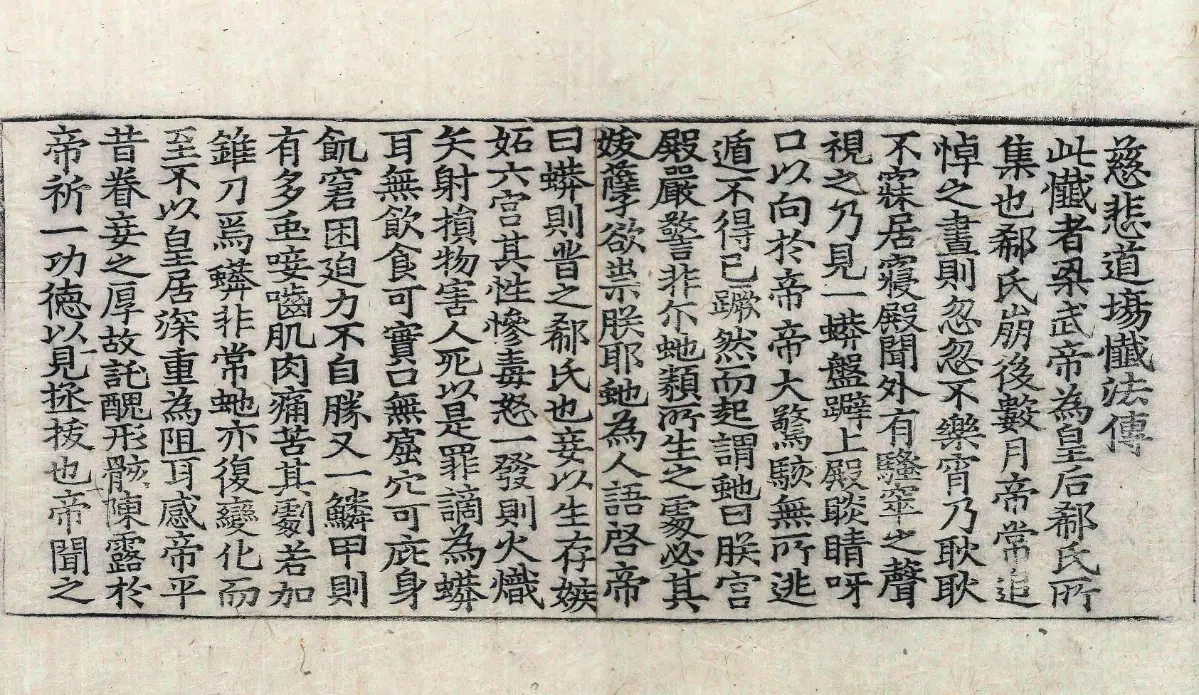 慈悲道場懺法傳
此懺者梁武帝為皇后郗氏所
集也郗氏崩後數月帝常追
悼之晝則忽忽不樂宵乃耿耿
不寐居寢殿聞外有騷窣之聲
視之乃見一蟒盤躃上殿睒睛呀
口以向於帝帝大驚駭無所逃
遁不得已蹶然而起謂虵曰朕宮
殿嚴警非尒虵類所生之處必其
妖孽欲祟朕耶虵為人語啓帝
曰蟒則昔之郗氏也妾以生存嫉
妬六宮其性慘毒怒一發則火熾
矢射損物害人死以是罪謫為蟒
耳無飲食可實口無窟穴可庇身
飢窘困迫力不自勝又一鱗甲則
有多䖝唼嚙肌肉痛苦其劇若加
錐刀焉蟒非常虵亦復變化而
至不以皇居深重為阻耳感帝平
昔眷妾之厚故託醜形骸陳露於
帝祈一功德以見拯拔也帝聞之